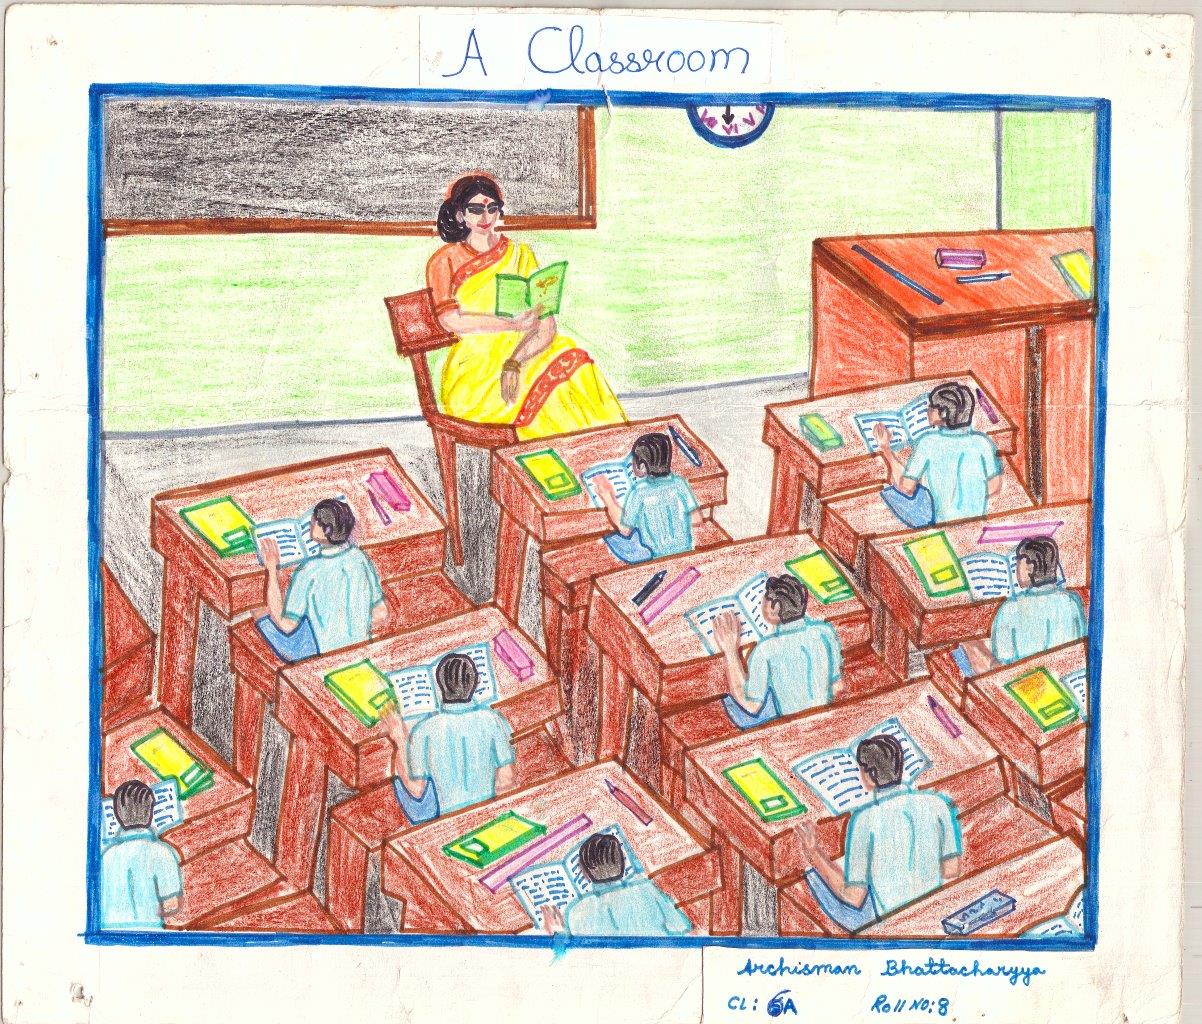 A Classroom
VI V
Archisman Bhattacharyya
CL: 6A Roll NO: 8